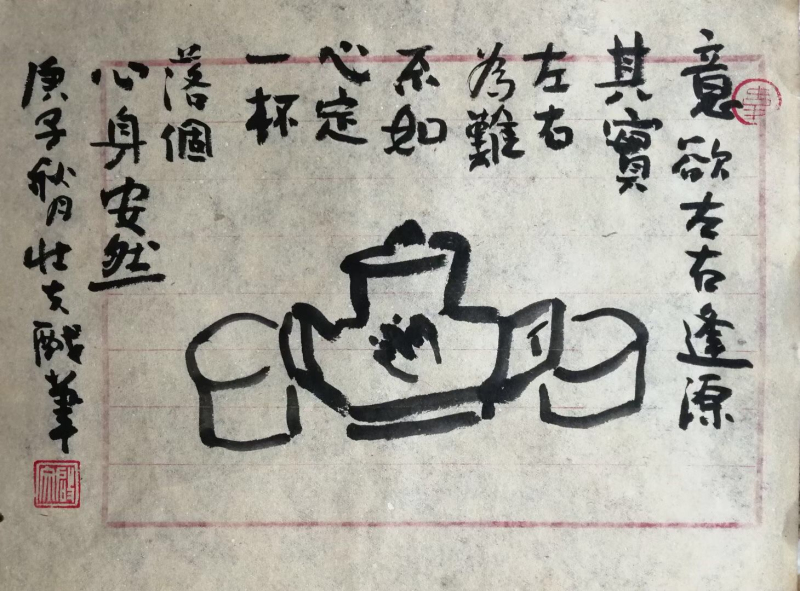 意欲左右逢源
其實
左右
為難
不如
心定
一杯
落個
心身安然
庚子秋月壮夫酨筆